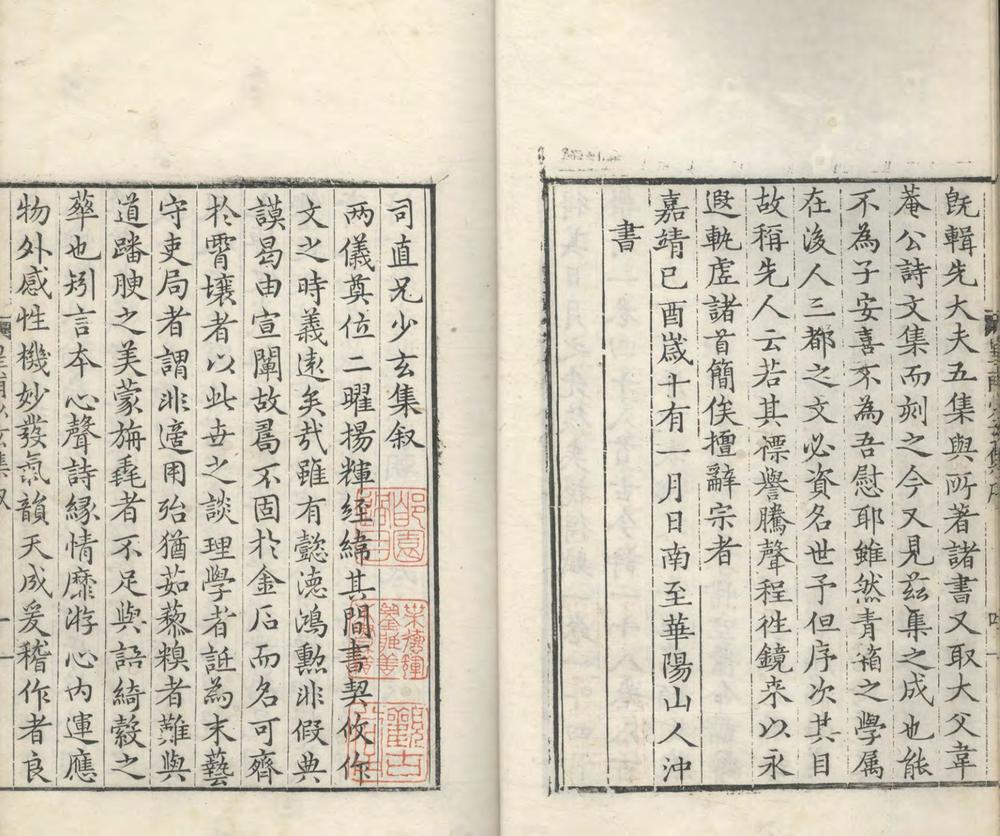 既輯先大夫五集與所著諸書又取大父韋
菴公詩文集而刻之今又見茲集之成也能
不為子安喜不為吾慰耶雖然青箱之學属
在後人三都之文必資名世予但序次其目
故稱先人云若其褾譽騰聲程徃鏡来以永
遐軌虛諸首簡俟擅辭宗者
嘉靖己酉歲十有一月日南至華陽山人沖
書
司直兄少玄集叙
两儀奠位二曜揚輝經緯其間書契攸作
文之時義遠矣㢤雖有懿德鴻勲非假典
謨曷由宣闡故曷不固扵金石而名可齊
扵霄壤者以此世之談理學者詆為末藝
守吏局者謂非適用殆猶茹藜糗者難與
道膰腴之美蒙旃毳者不足與語綺縠之
華也矧言本心聲詩縁情靡游心内運應
物外感性機妙發氣韻天成爰稽作者良